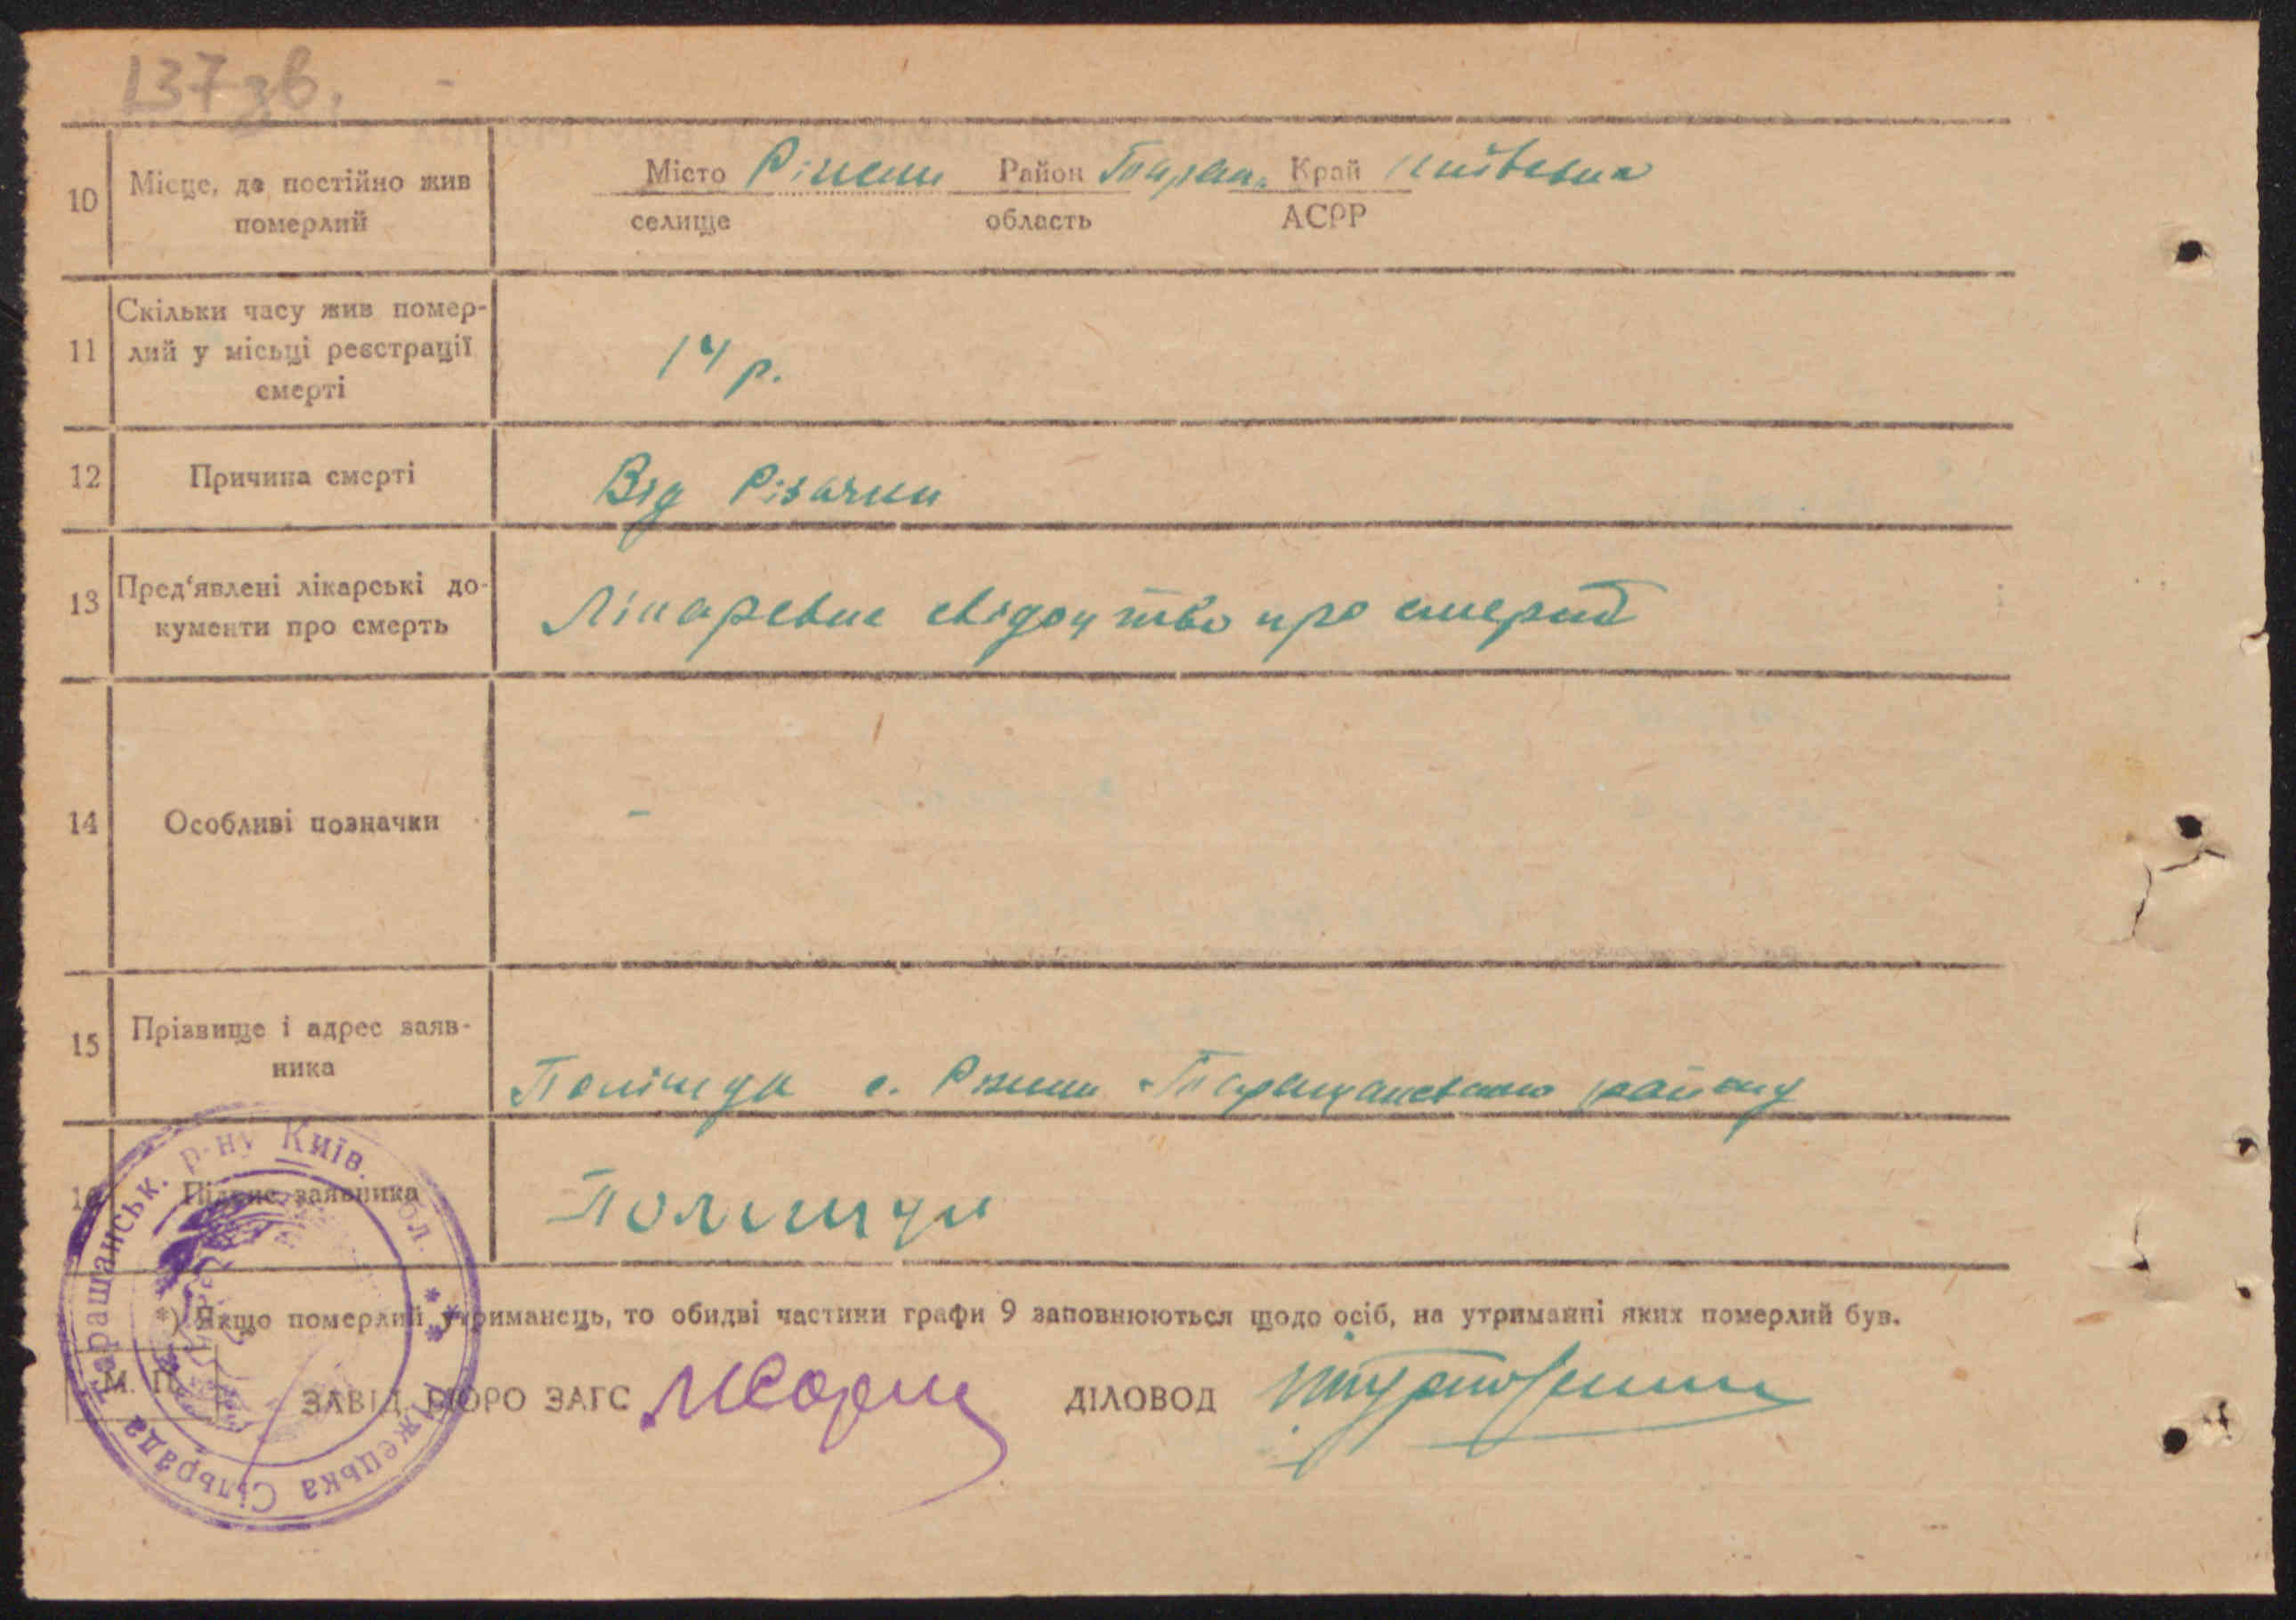 137 зв.
10 Місце, де постійно жив померлий
Місто Ріжки Район Таращ. Край Київська
селище область АСРР
11 Скільки часу жив помер-
лий у місьці реєстрації
смерті
14 р.
12 Причина смерті
Від Різачки
13 Пред'явлені лікарські до-
кументи про смерть
Лікарське свідоцтво про смерть
14 Особливі позначки
-
15 Прізвище і адрес заяв-
ника
Поліщук с. Ріжки Таращанського району
16 Підпис заявника
Поліщук
*) Якщо померлий утриманець, то обидві частини графи 9 заповнюються щодо осіб, на утриманні яких померлий був.
М. П.
ЗАВІД. БЮРО ЗАГС
ДІЛОВОД
сільрада Таращанськ. р-ну Київ. обл.